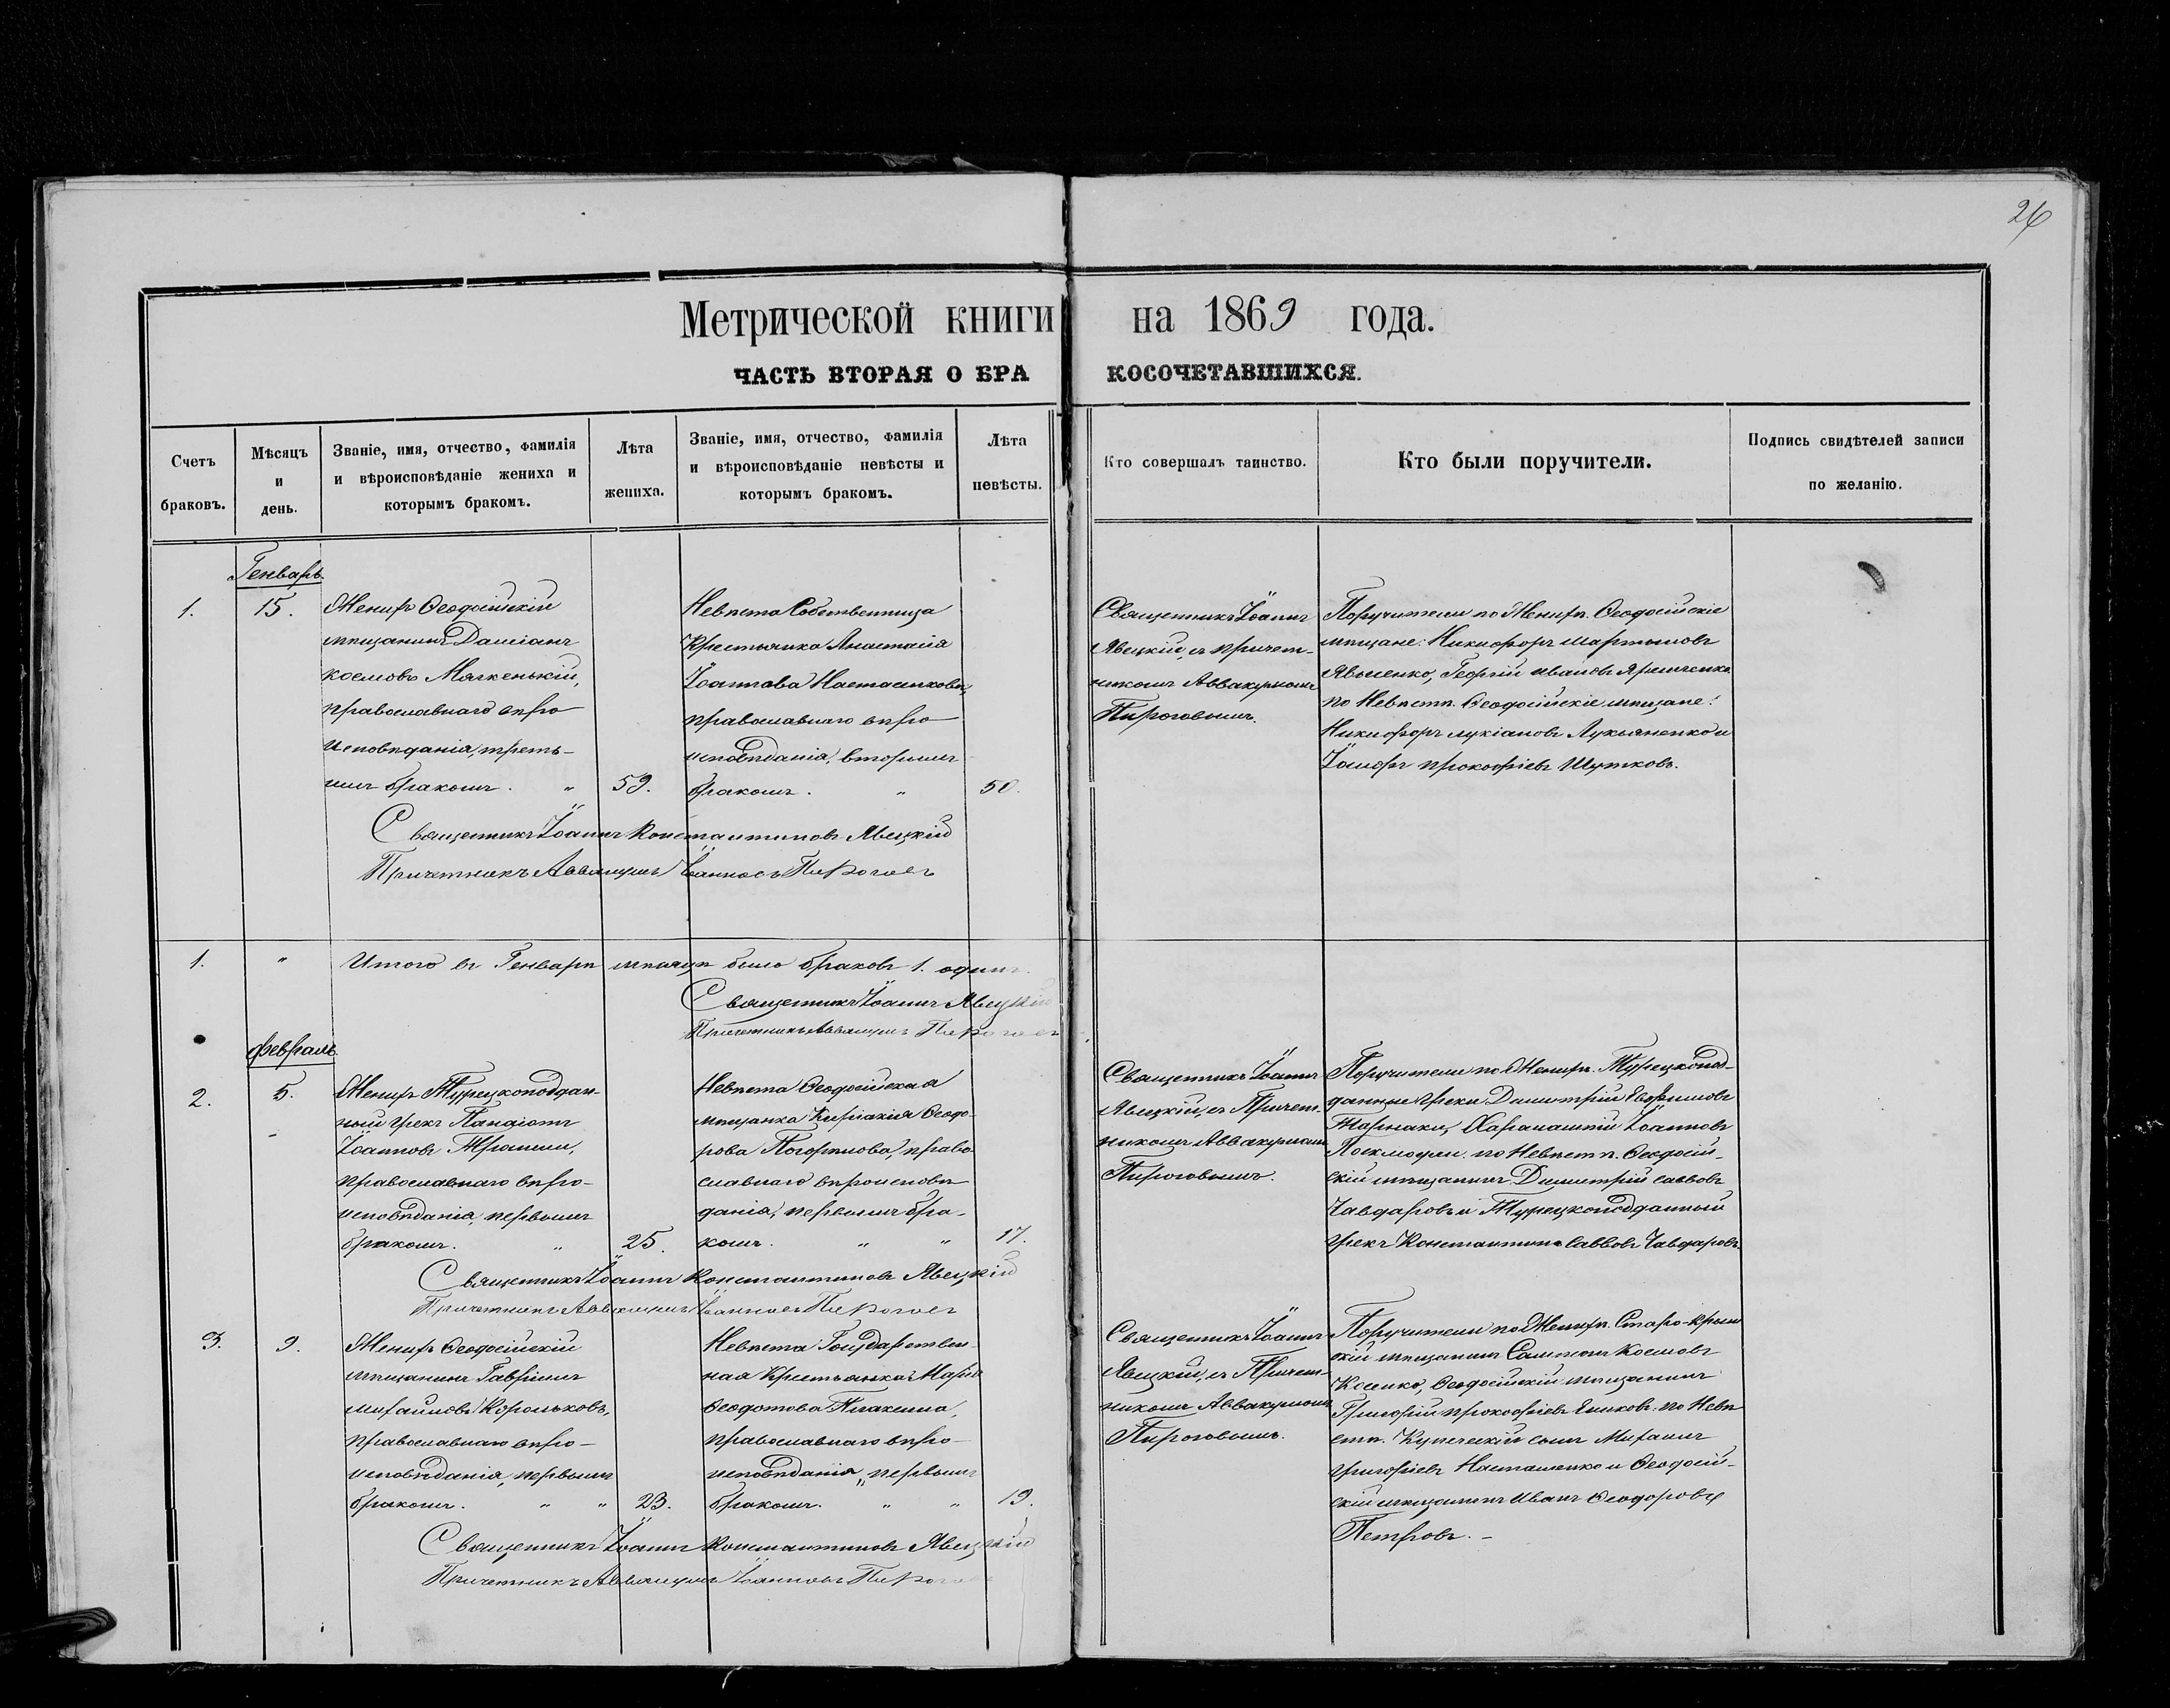 26
Метрической книги на 1869 года.
ЧАСТЬ ВТОРАЯ О БРАКОСОЧЕТАВШИХСЯ.
Счетъ браковъ.
Мѣсяцъ и день.
Званіе, имя, отчество, фамилія
и вѣроисповѣданіе жениха и
которымъ бракомъ.
Лѣта жениха.
Званіе, имя, отчество, фамилія
и вѣроисповѣданіе невѣсты и
которымъ бракомъ.
Лѣта невѣсты.
Кто совершалъ таинство.
Кто были поручители.
Подпись свидѣтелей записи
по желанію.
Генварь
1.
15.
Женихъ Ѳеодосійскій
мѣщанинъ Даміанъ
космовъ Мягкенькій,
православнаго вѣро
исповѣданія, треть-
имъ бракомъ. "
59.
Невѣста Собственница
Крестьянка Анастасія
Іоаннова
православнаго вѣро
исповѣданія, вторымъ
бракомъ. "
50.
Священникъ Іоаннъ
Явецкій, съ причет-
никомъ Аввакумомъ
Пироговымъ.
Поручители по Женихѣ. Ѳеодосійскіе
мѣщане: Никифоръ мартыновъ
Георгій ивановъ
по Невѣстѣ. Ѳеодосійскіе мѣщане:
Никифоръ лукіановъ Лукьяненко и
прокофіевъ Шутковъ.
Священникъ Іоаннъ Константиновъ Явецкій
Причетникъ Аввакумъ Іоанновъ Пироговъ
1.
"
Итого въ Генварѣ мѣсяцѣ было браковъ 1. одинъ.
Священникъ Іоаннъ Явецкій
Причетникъ Аввакумъ Пироговъ
февраль.
2.
5.
Женихъ Турецкоподдан-
ный грекъ Панаіотъ
Іоанновъ
православнаго вѣро-
исповѣданія, первымъ
бракомъ. "
25.
Невѣста Ѳеодосійская
мѣщанка Киріакія Ѳеодо-
рова Погорѣлова, право
славнаго вѣроисповѣ
данія, первымъ бра-
комъ. " "
17.
Священникъ Іоаннъ
Явецкій, съ Причет-
никомъ Аввакумомъ
Пироговымъ.
Поручители по Женихѣ. Турецкопод-
данные греки Димитрій Евфимовъ
Іоанновъ
по Невѣстѣ. Ѳеодосій-
скій мѣщанинъ Димитрій саввовъ
Чавдаровъ и Турецкоподданный
грекъ Константинъ Саввовъ Чавдаровъ.
Священникъ Іоаннъ Константиновъ Явецкій
Причетникъ Аввакумъ Іоанновъ Пироговъ
3.
9.
Женихъ Ѳеодосійскій
мѣщанинъ Гавріилъ
михаиловъ Корольковъ,
православнаго вѣро-
исповѣданія, первымъ
бракомъ. " "
23.
Невѣста Государствен-
ная Крестьянка Марія
Ѳеодотова
православнаго вѣро-
исповѣданія, первымъ
бракомъ. " "
19.
Священникъ Іоаннъ
Явецкій, съ Причет-
никомъ Аввакумомъ
Пироговымъ.
Поручители по Женихѣ. Старо-крым
скій мѣщанинъ Космовъ
Ѳеодосійскій мѣщанинъ
Григорій прокофіевъ по Невѣ
стѣ. Купеческій сынъ Михаилъ
григоріевъ Насташенко и Ѳеодосій-
скій мѣщанинъ Иванъ Ѳеодоровъ
Петровъ.-
Священникъ Іоаннъ Константиновъ Явецкій
Причетникъ Аввакумъ Іоанновъ Пирогов